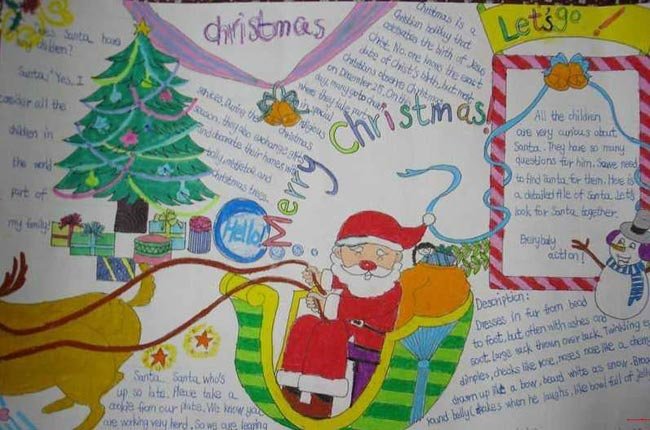 Yes. Santa have
children?
Santa, "Yes. I
consider all the
children in
the world
part of
my family.
christmas
Christmas is a
Christian holiday that
celebrates the birth of Jesus
Christ. No one knows the exact
date of Christ's birth, but most
Christians observe Christmas
on December 25. On this
day, many go to church
where they take part
in special
religious
services. During the Christmas
season, they also exchange gifts
and decorate their homes with
holly, mistletoe and
christmas trees.
Merry Christmas!
Hello
Let's go!!
All the children
are very curious about
Santa. They have so many
questions for him. So we need
to find Santa for them. Here is
a detailed file of Santa. Let's
look for Santa together.
Everybody
action!
Description:
Dresses in fur from head
to foot, but often with ashes and
soot, large sack thrown over back. Twinkling ey
dimples, cheeks like rose, noses nose like a cherr
drawn up like a bow, beard white as snow. Broa
round belly (shakes when he laughs, like bowl full of jelly
Santa, Santa, who's
up so late. Please take a
cookie from our plate. We know you
are working very hard. So we are leaving